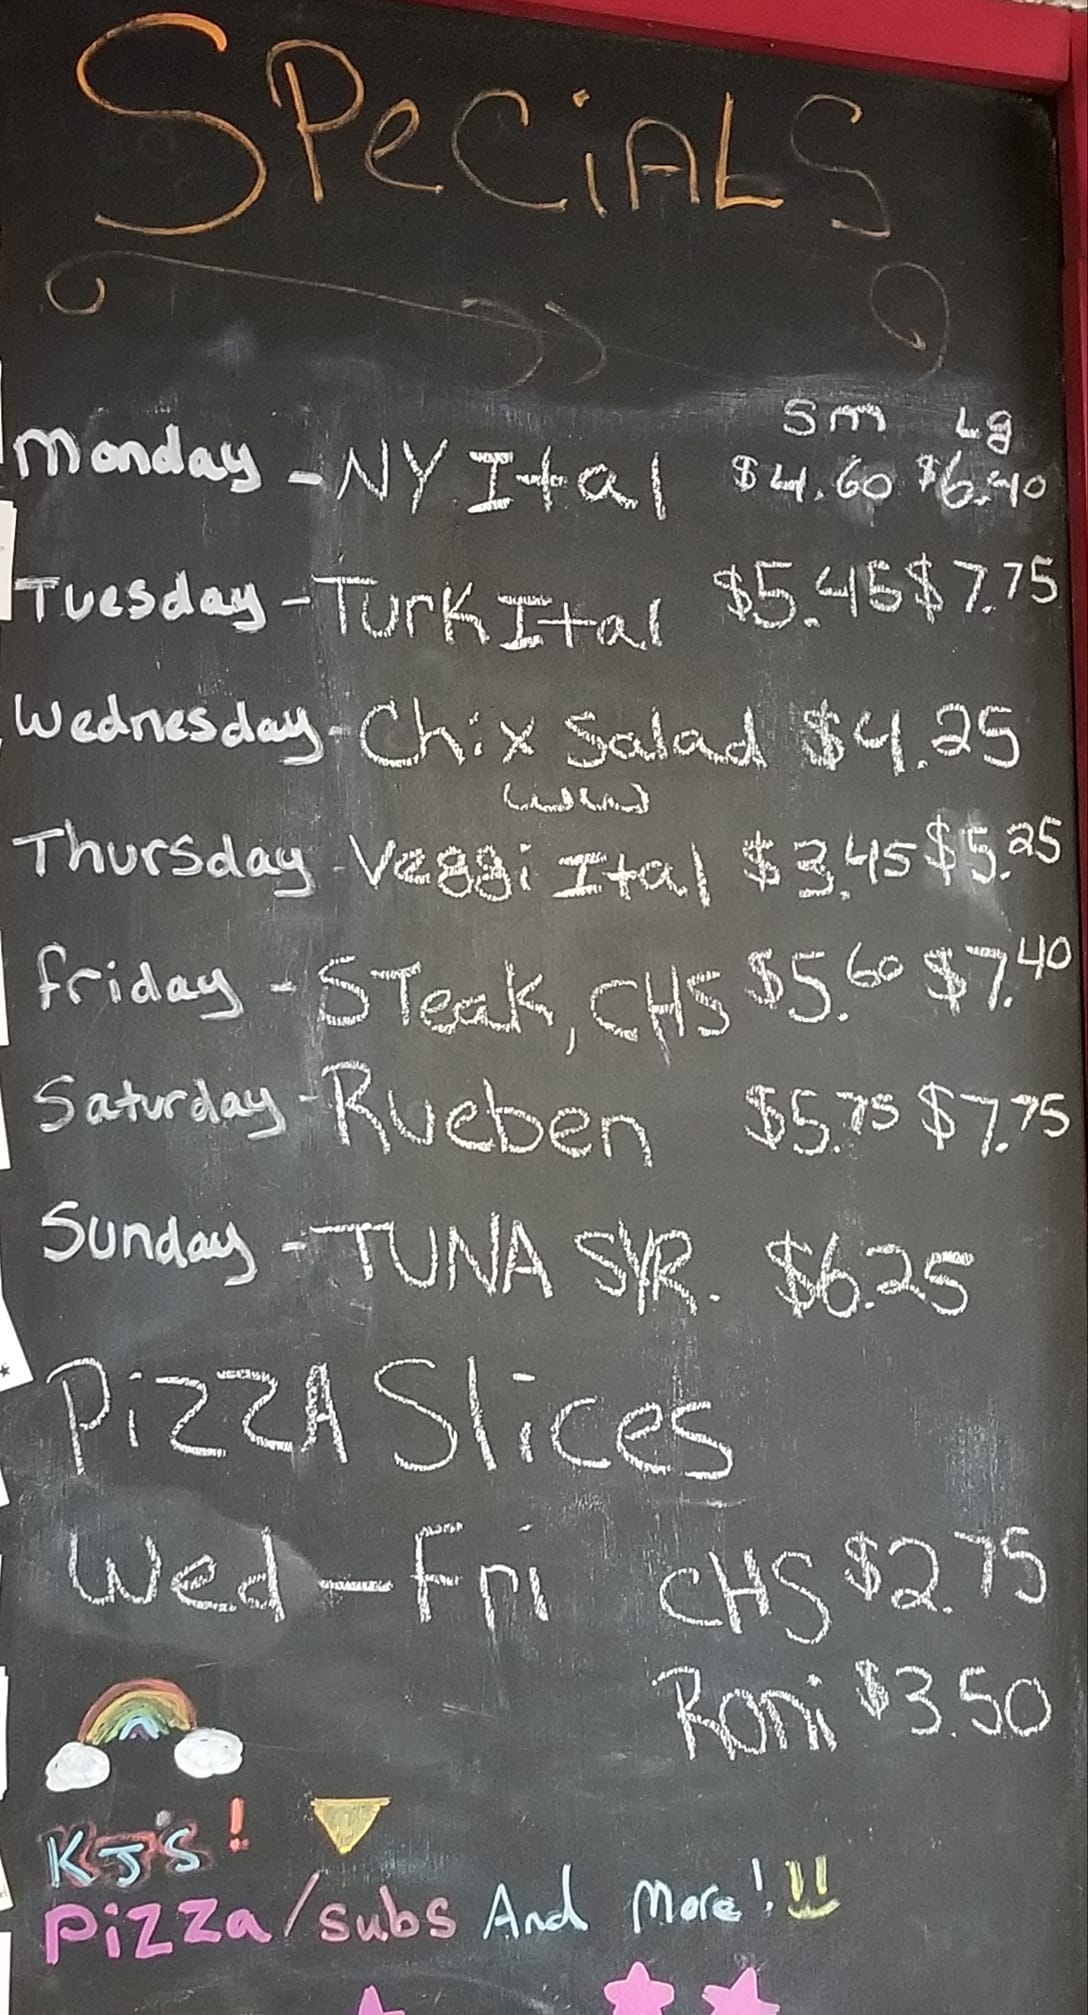 SPeCiALS
Sm Lg
Monday - NY Ital $4.60 $6.40
Tuesday - Turk Ital $5.45 $7.75
Wednesday - Chix Salad $4.25
Thursday - Veggi Ital $3.45 $5.25
friday - STeak, CHS $5.60 $7.40
Saturday - Rueben $5.75 $7.75
Sunday - TUNA SYR. $6.25
PiZZA Slices
Wed - Fri CHS $2.75
Roni $3.50
KJ's!
Pizza/subs And More!!!